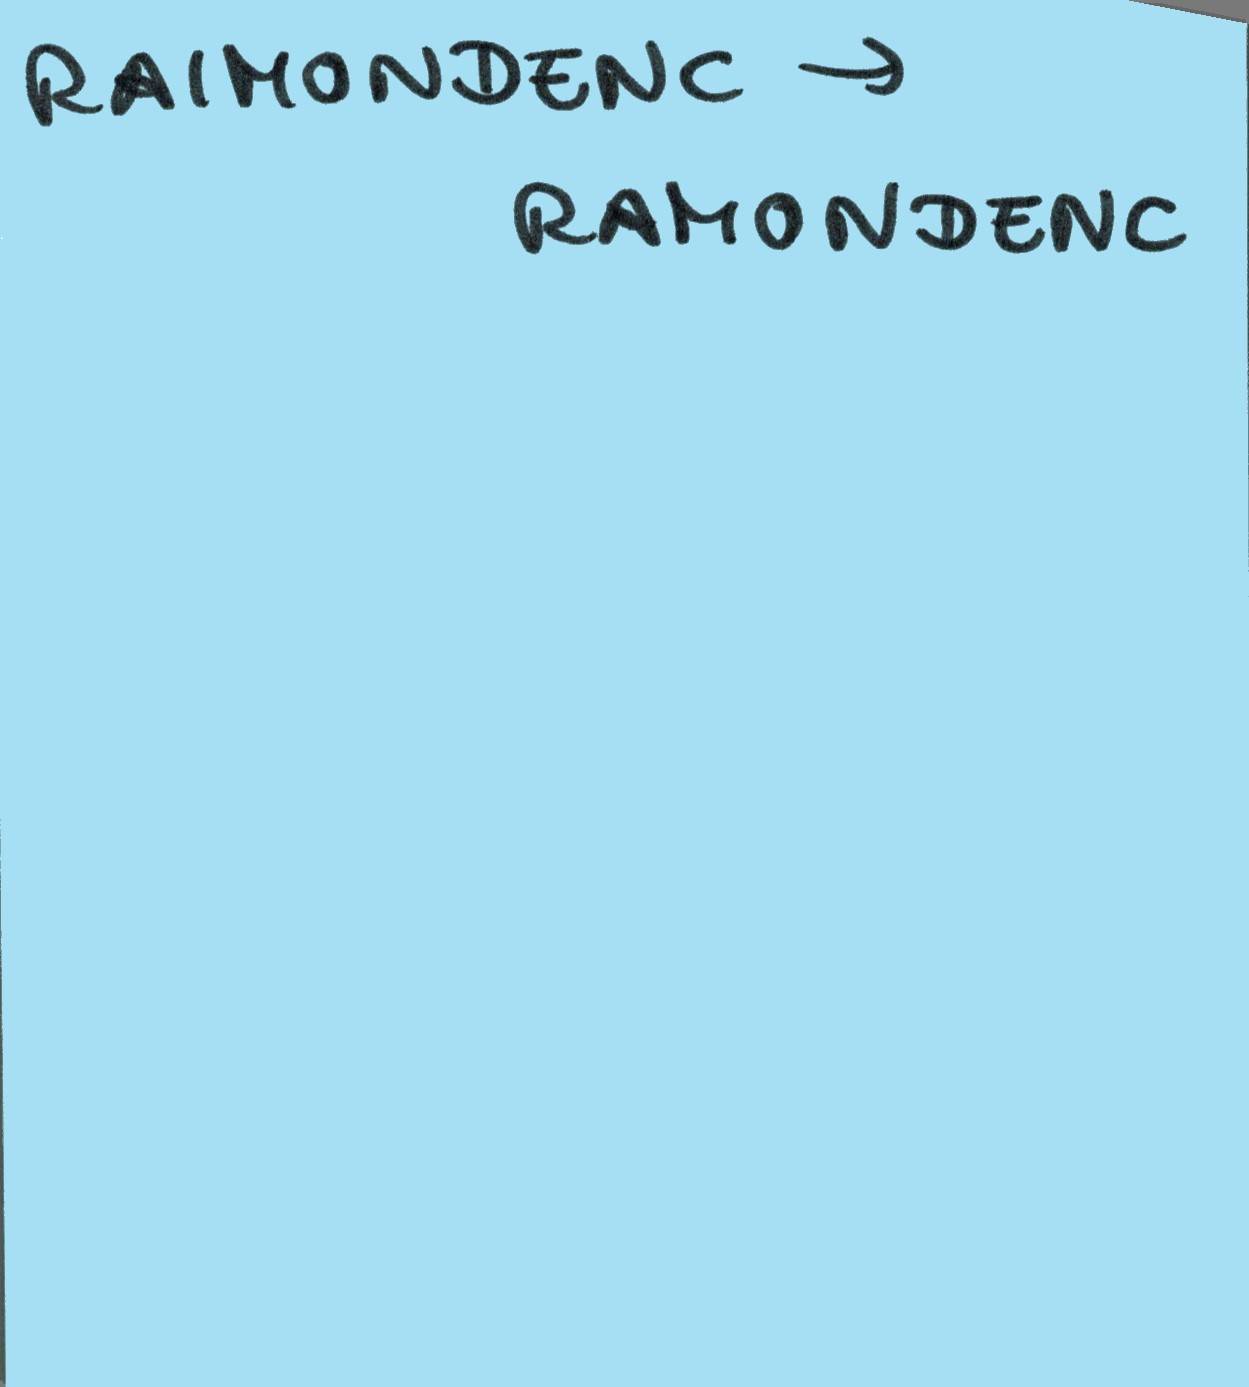 RAIMONDENC →
RAMONDENC